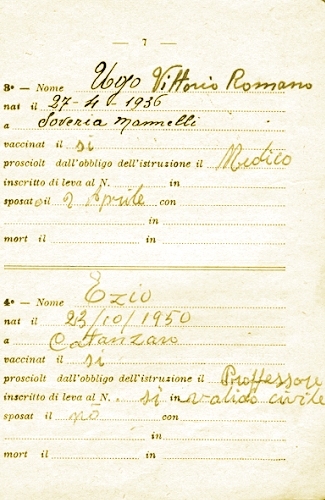 — 7 —
3º — Nome Ugo Vittorio Romano
nat il 27-4-1936
a Soveria Mannelli
vaccinat il si
prosciolt dall'obbligo dell'istruzione il Medico
inscritto di leva al N. in
sposato il 2 Aprile con
in
mort il in
4º — Nome Ezio
nat il 23/10/1950
a Cattanzaro
vaccinat il si
prosciolt dall'obbligo dell'istruzione il Proffessore
inscritto di leva al N. si in valido civile
sposat il nō con
in
mort il in